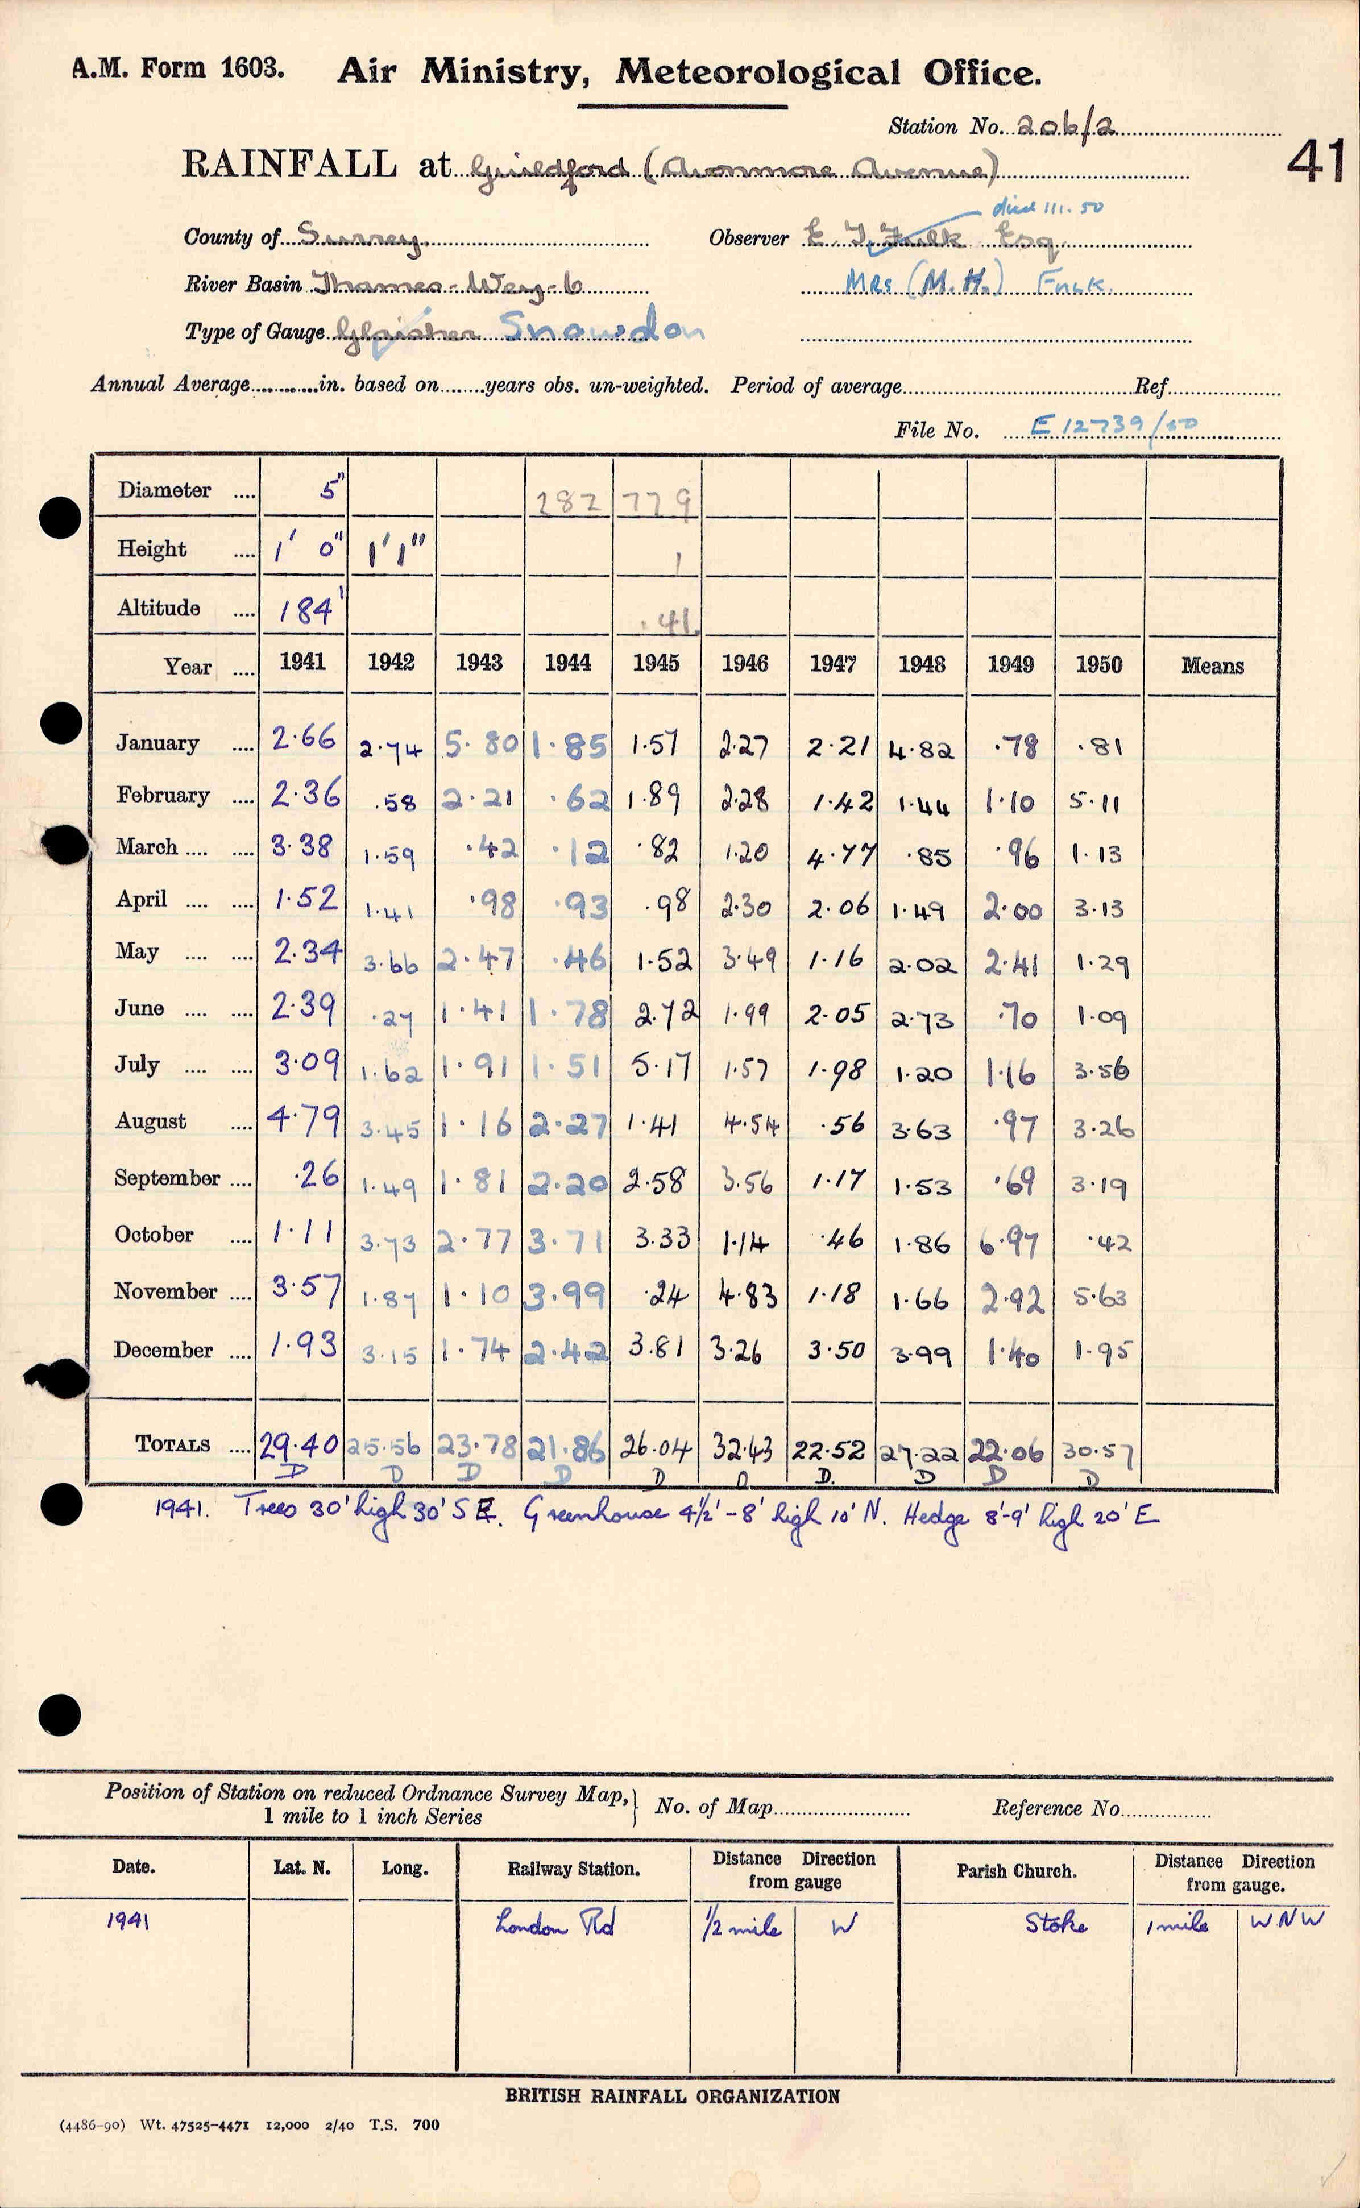 A.M. Form 1603. Air Ministry, Meteorological Office.
Station No. 206/2
41
RAINFALL at Guildford (Avonmore Avenue)
died 111.50
County of Surrey. Observer E. J. Fulk Esq.
River Basin Thames - Wey - 6 Mrs (M.H.) Fulk.
Type of Gauge Glaisher Snowdon
Annual Average in. based on years obs. un-weighted. Period of average Ref.
File No. E12739/50
Diameter .... 5" 282 779
Height .... 1' 0" 1'1" 1
Altitude .... 184' .41
Year .... 1941 1942 1943 1944 1945 1946 1947 1948 1949 1950 Means
January .... 2.66 2.74 5.80 1.85 1.57 2.27 2.21 4.82 .78 .81
February .... 2.36 .58 2.21 .62 1.89 2.28 1.42 1.44 1.10 5.11
March .... .... 3.38 1.59 .42 .12 .82 1.20 4.77 .85 .96 1.13
April .... .... 1.52 1.41 .98 .93 .98 2.30 2.06 1.49 2.00 3.13
May .... .... 2.34 3.66 2.47 .46 1.52 3.49 1.16 2.02 2.41 1.29
June .... .... 2.39 .27 1.41 1.78 2.72 1.99 2.05 2.73 .70 1.09
July .... .... 3.09 1.62 1.91 1.51 5.17 1.57 1.98 1.20 1.16 3.56
August .... 4.79 3.45 1.16 2.27 1.41 4.54 .56 3.63 .97 3.26
September .... .26 1.49 1.81 2.20 2.58 3.56 1.17 1.53 .69 3.19
October .... 1.11 3.73 2.77 3.71 3.33 1.14 .46 1.86 6.97 .42
November .... 3.57 1.87 1.10 3.99 .24 4.83 1.18 1.66 2.92 5.63
December .... 1.93 3.15 1.74 2.42 3.81 3.26 3.50 3.99 1.40 1.95
TOTALS .... 29.40 25.56 23.78 21.86 26.04 32.43 22.52 27.22 22.06 30.57
D D D D D D D. D D D
1941. Trees 30' high 30' SE. Greenhouse 4½'-8' high 10' N. Hedge 8'-9' high 20' E
Position of Station on reduced Ordnance Survey Map, 1 mile to 1 inch Series } No. of Map Reference No.
Date. Lat. N. Long. Railway Station. Distance Direction from gauge Parish Church. Distance Direction from gauge.
1941 London Rd ½ mile W Stoke 1 mile WNW
BRITISH RAINFALL ORGANIZATION
(4486-90) Wt. 47525-4471 12,000 2/40 T.S. 700